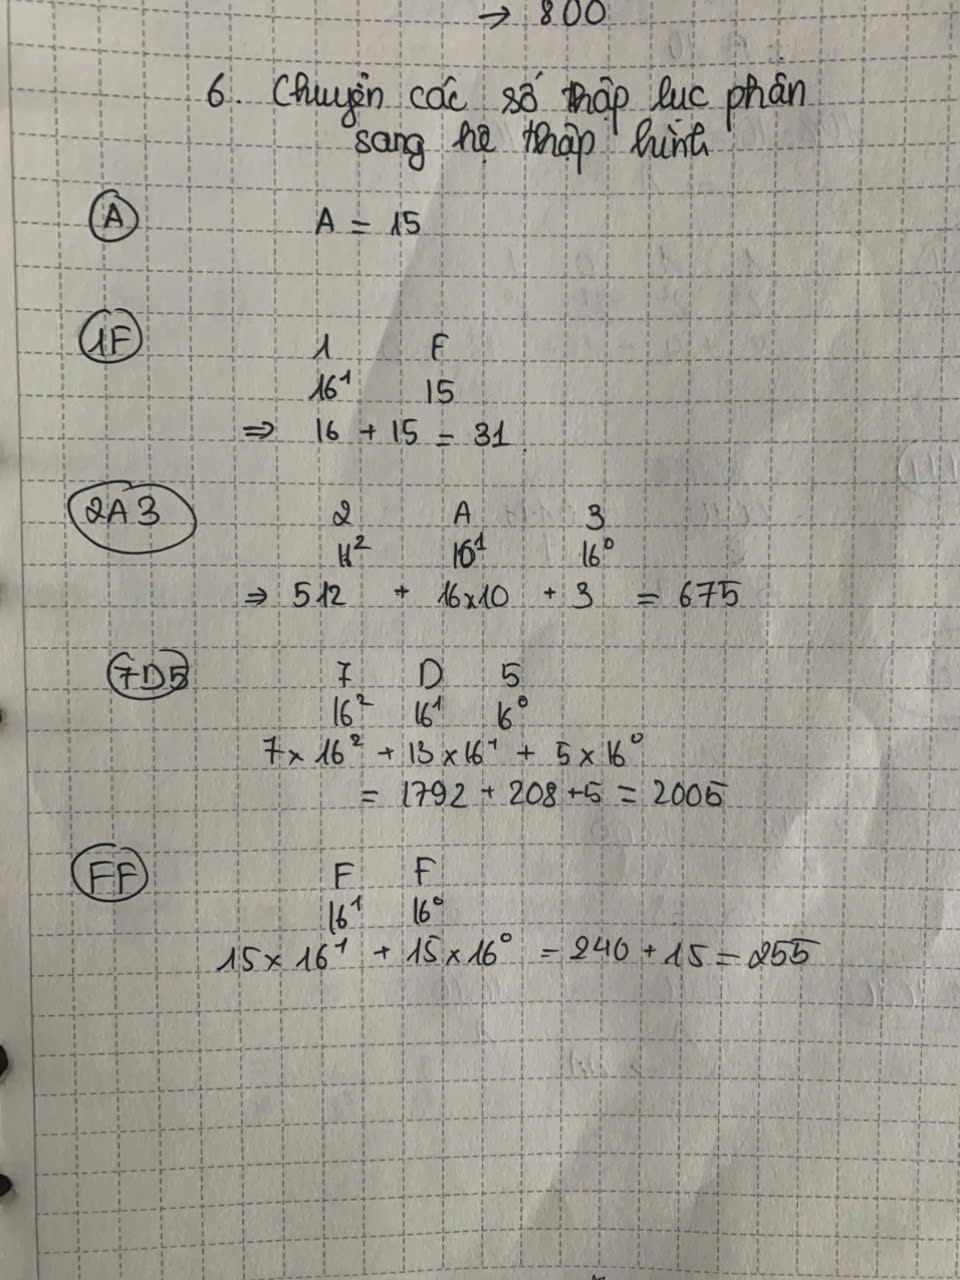 → 800
6. Chuyển các số thập lục phân
sang hệ thập hình
A A = 15
1F 1 F
16¹ 15
⇒ 16 + 15 = 31
2A3 2 A 3
16² 16¹ 16⁰
⇒ 512 + 16x10 + 3 = 675
7D5 7 D 5
16² 16¹ 16⁰
7 x 16² + 13 x 16¹ + 5 x 16⁰
= 1792 + 208 + 5 = 2005
FF F F
16¹ 16⁰
15 x 16¹ + 15 x 16⁰ = 240 + 15 = 255